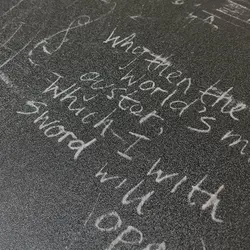 why then the
world's m
oyster,
which I with
sword will
ope